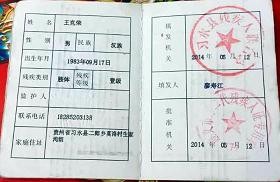 姓名 王克荣
性别 男 民族 汉族
出生年月 1983年09月17日
残疾类别 肢体 残疾等级 壹级
监护人
联系电话 18285203138
家庭住址 贵州省习水县二郎乡
填发机关
习水县残疾人联
2014 年 05月 12日
填发人 廖寿江
批准机关
残疾人联
2014 年 05月 12日